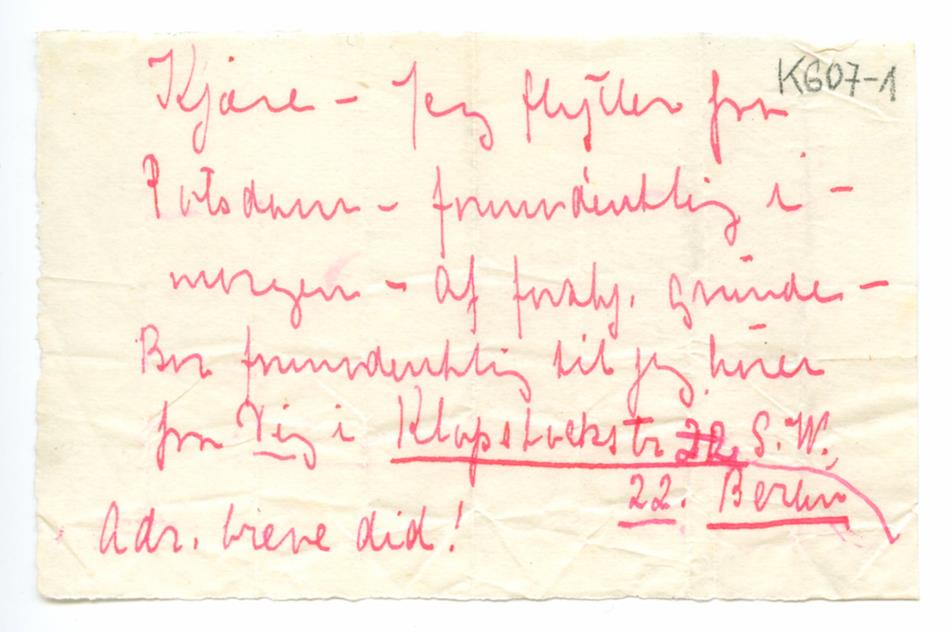 K607-1
Kjære – Jeg flytter fra
Potsdam – formodentlig i –
morgen – af forskj. grunde –
Bor formodentlig til jeg hører
fra Dig i Klopstockstr 22 S.W.
22. Berlin
Adr. breve did!